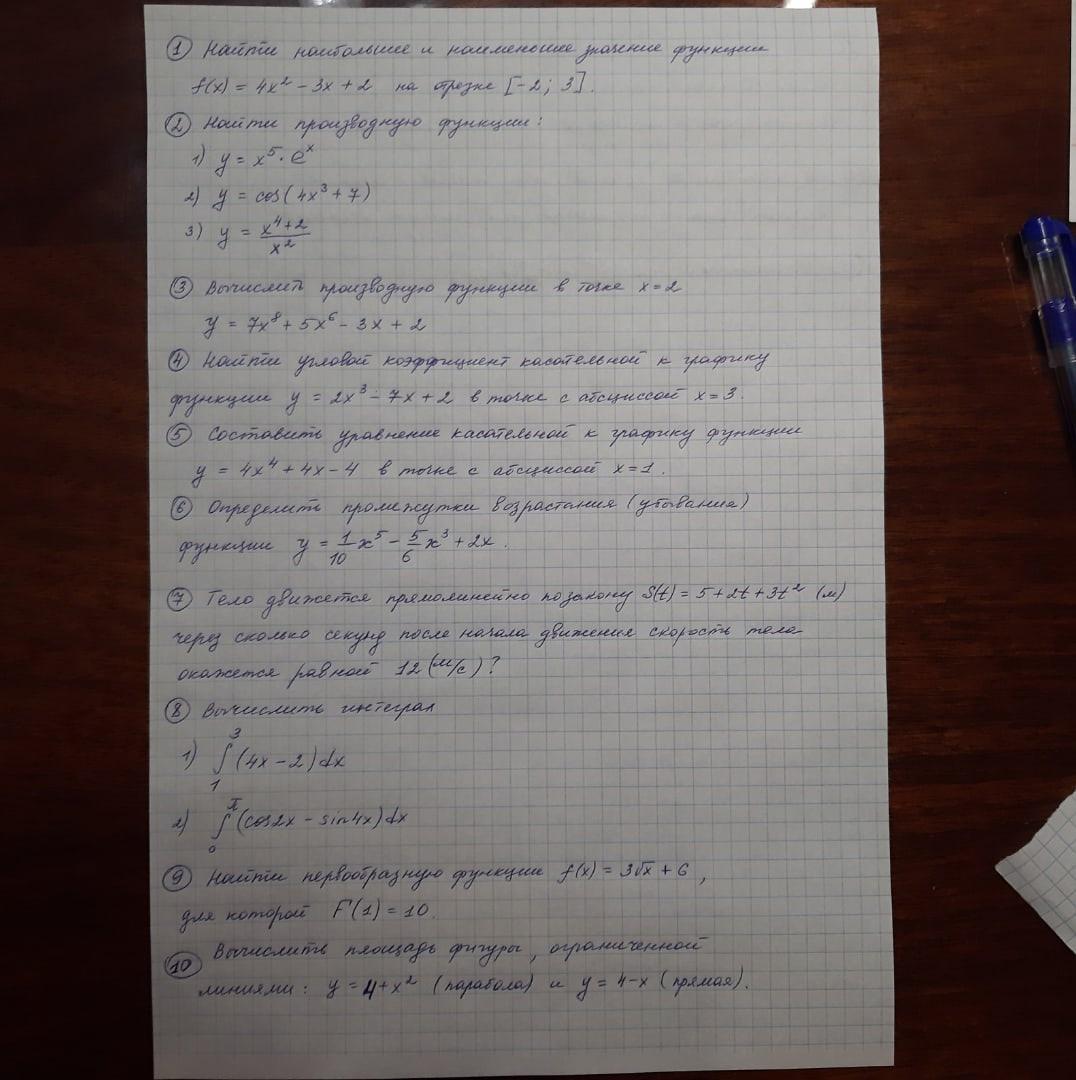 ① Найти наибольшее и наименьшее значение функции
f(x) = 4x² - 3x + 2 на отрезке [-2; 3].
② Найти производную функции:
1) y = x⁵ · eˣ
2) y = cos(4x³ + 7)
3) y = (x⁴+2)/x²
③ Вычислить производную функции в точке x=2
y = 7x⁸ + 5x⁶ - 3x + 2
④ Найти угловой коэффициент касательной к графику
функции y = 2x³ - 7x + 2 в точке с абсциссой x=3.
⑤ Составить уравнение касательной к графику функции
y = 4x⁴ + 4x - 4 в точке с абсциссой x=1.
⑥ Определить промежутки возрастания (убывания)
функции y = 1/10 x⁵ - 5/6 x³ + 2x.
⑦ Тело движется прямолинейно по закону S(t) = 5+2t+3t² (м)
через сколько секунд после начала движения скорость тела
окажется равной 12 (м/с)?
⑧ Вычислить интеграл
1) ∫₁³ (4x - 2) dx
2) ∫₀^π (cos2x - sin4x) dx
⑨ Найти первообразную функции f(x) = 3√x + 6,
для которой F(1) = 10.
⑩ Вычислить площадь фигуры, ограниченной
линиями: y = 4+x² (парабола) и y = 4-x (прямая).